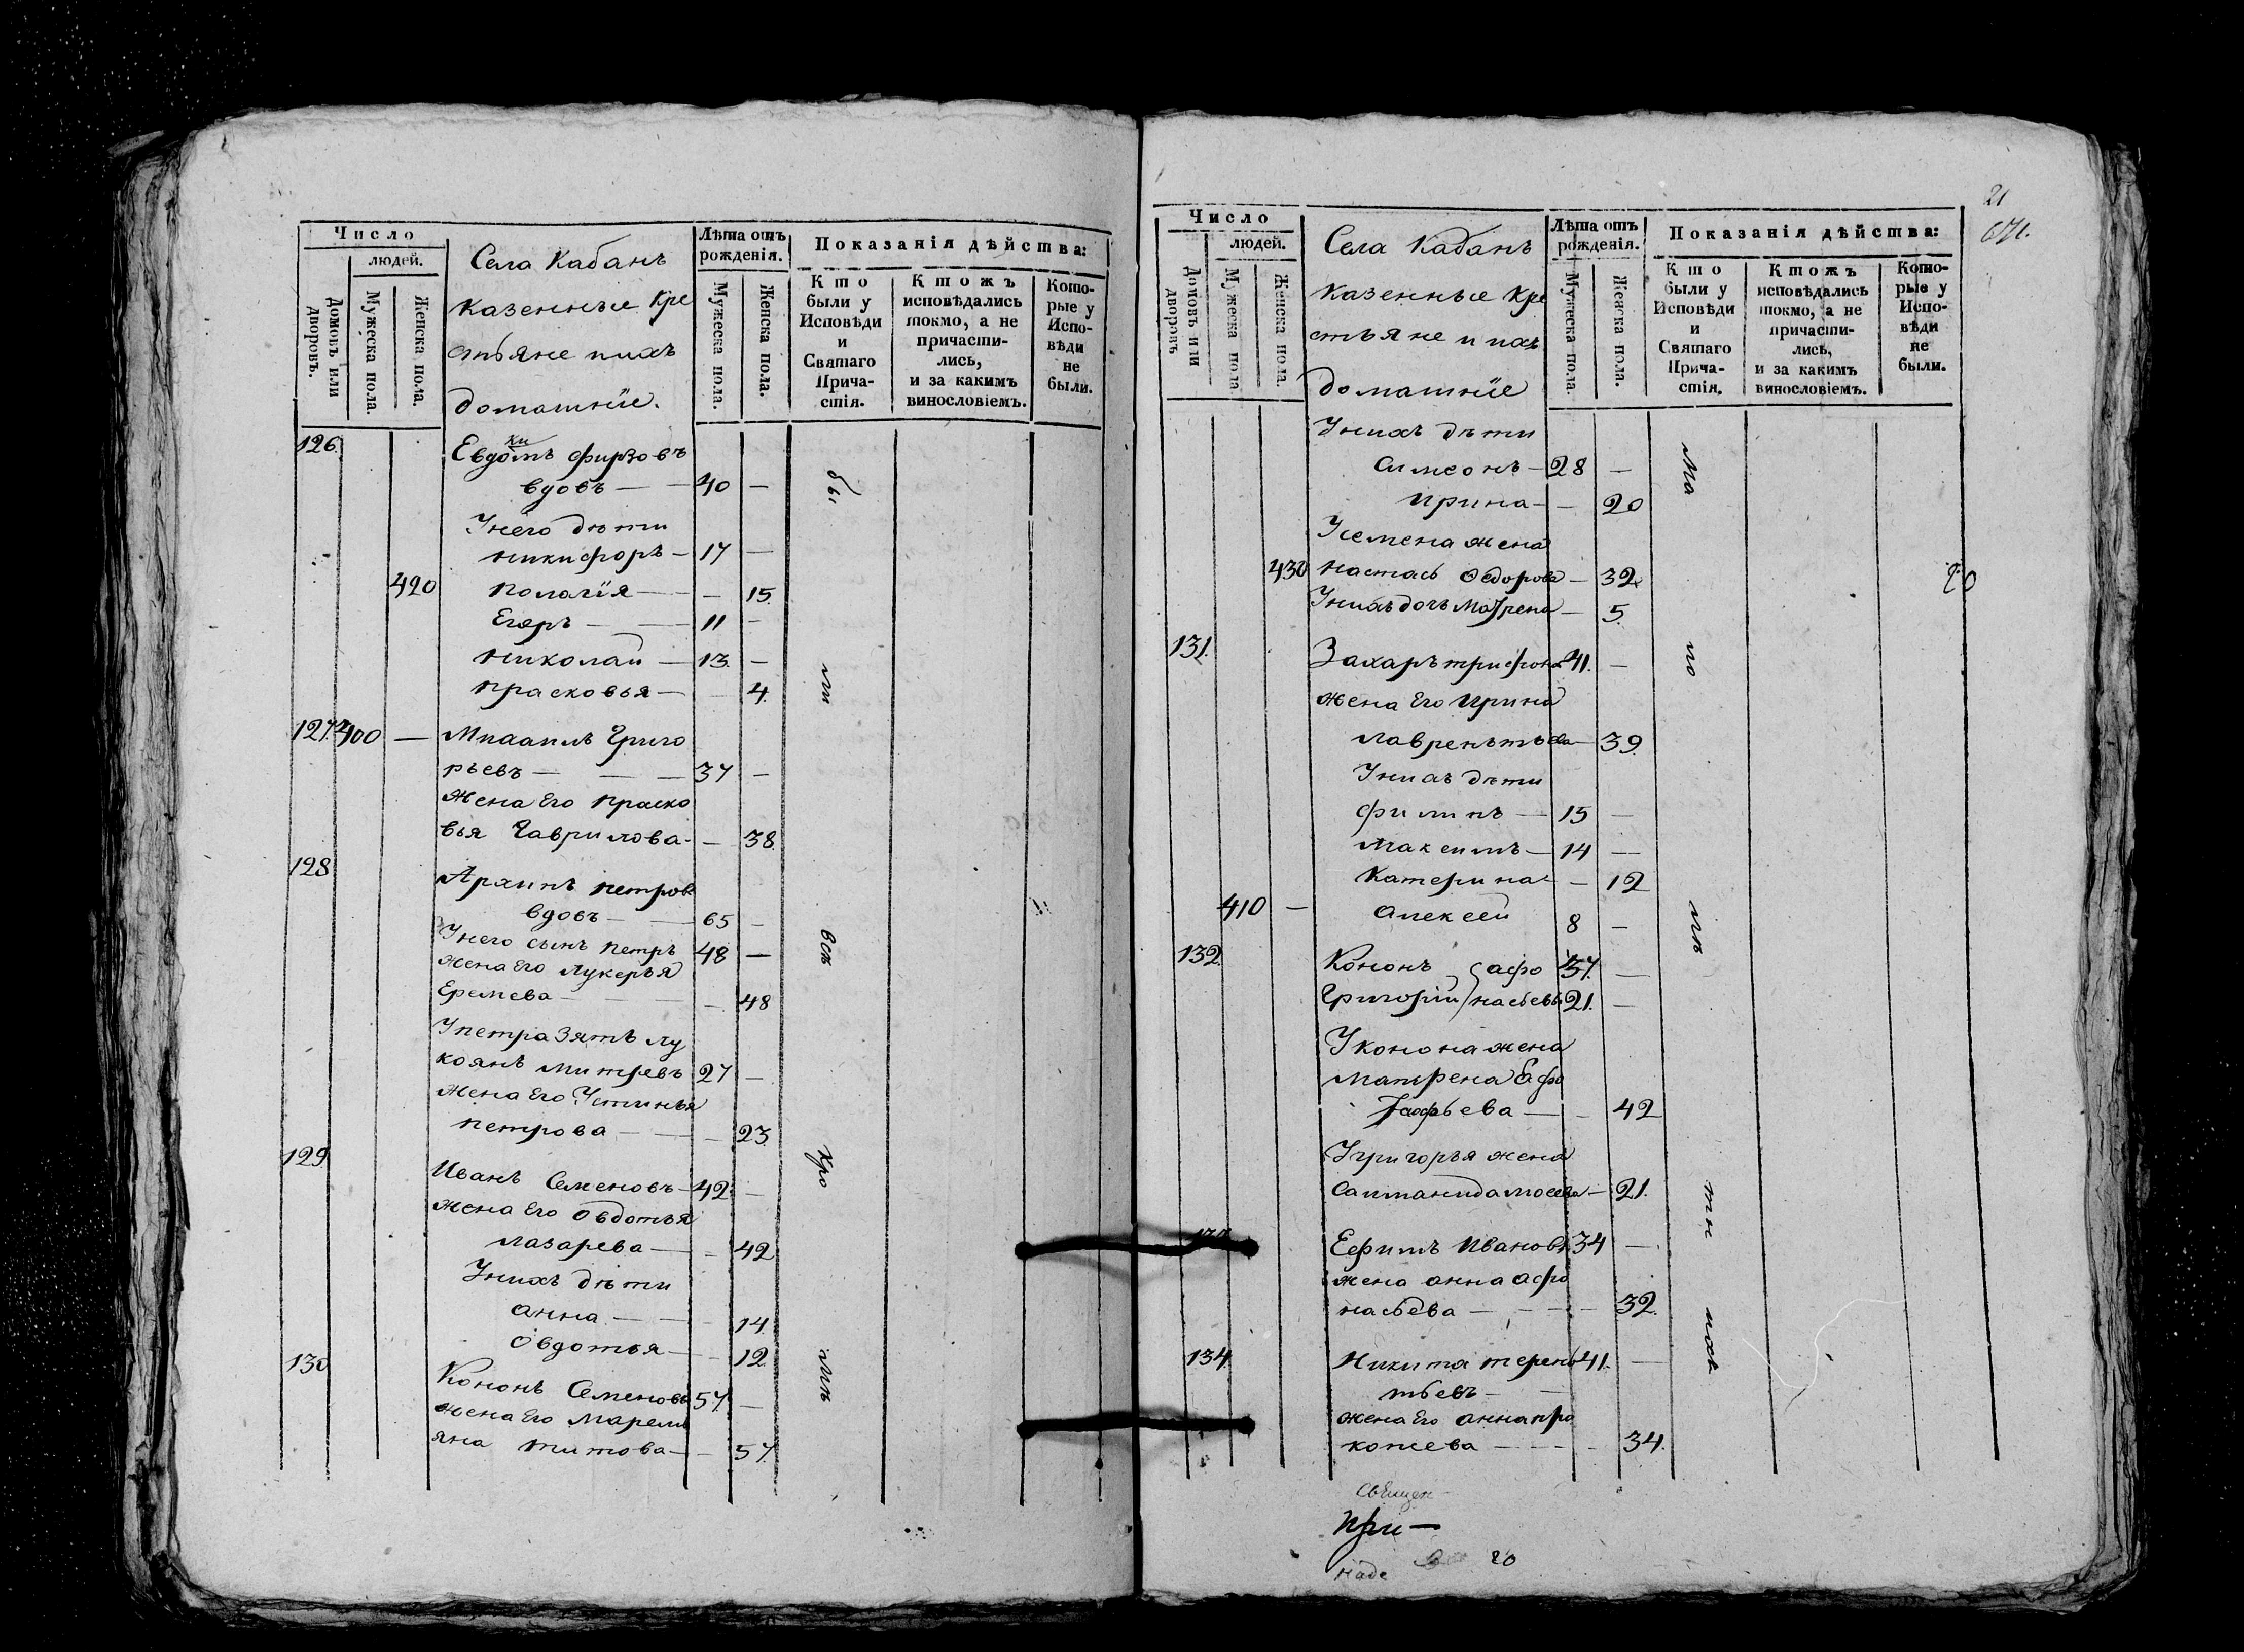 Число
людей.
Домовъ или дворовъ.
Мужеска пола.
Женска пола.
Села Кабанъ
казенные кре
стьяне ииxъ
домашнїе.
Лѣта отъ рожденія.
Мужеска пола.
Женска пола.
Показанія дѣйства:
Кто были у Исповѣди и Святаго Причастія.
Ктожъ исповѣдались токмо, а не причастились, и за какимъ винословіемъ.
Которые у Исповѣди не были.
126. Евдокимъ фирзовъ
вдовъ — 40 —
Унего дѣти
никифоръ — 17 —
420 Пологїя — — 15.
Егоръ — 11 —
николай — 13. —
прасковья — — 4.
127. 400 — Михаилъ Григо
рьевъ — 37 —
жена Его праско
вья Гаврилова — — 38.
128 Архипъ петровъ
вдовъ — 65 —
Унего сынъ петръ 48 —
жена Его лукерья
Еремева — — 48
Упетра зять лу
коянъ митревъ 27 —
жена Его Устинья
петрова — — 23.
129 Иванъ Семеновъ — 42. —
жена Его Овдотья
лазарева — — 42
Унихъ дѣти
анна — — 14
овдотья — — 12
130 Кононъ Семеновъ 57. —
жена Его Мареми
яна титова — — 57.
бы
ли
всѣ
Кро
мѣ
21
671.
Число
людей.
Домовъ или дворовъ
Мужеска пола.
Женска пола.
Села Кабанъ
казенные кре
стьяне и ихъ
домашнїе
Лѣта отъ рожденія.
Мужеска пола.
Женска пола.
Показанія дѣйства:
Кто были у Исповѣди и Святаго Причастія.
Ктожъ исповѣдались токмо, а не причастились, и за какимъ винословіемъ.
Которые у Исповѣди не были.
Унихъ дѣти
симеонъ — 28 —
ирина — — 20
Усемена жена
430 настась Ѳедорова — 32
Унихъ дочь Матрена — 5.
131. Захаръ трифоно 41. —
жена Его ирина
лаврентьева — 39.
Унихъ дѣти
филипъ — 15 —
Максимъ — 14 —
Катерина — — 12
410 — алексей 8 —
132. Кононъ афо 37. —
Григорий насьевы 21. —
Уконона жена
матрена
— 42
Угригорья жена
— 21.
Ефимъ Ивановъ 34 —
жена анна афо
насьева — — 32.
134 Никита терень 41. —
тьевъ —
жена Его анна про
копева — — 34.
Ма
ло
лѣ
тн
ихъ
20
Священ
При —
наде
20